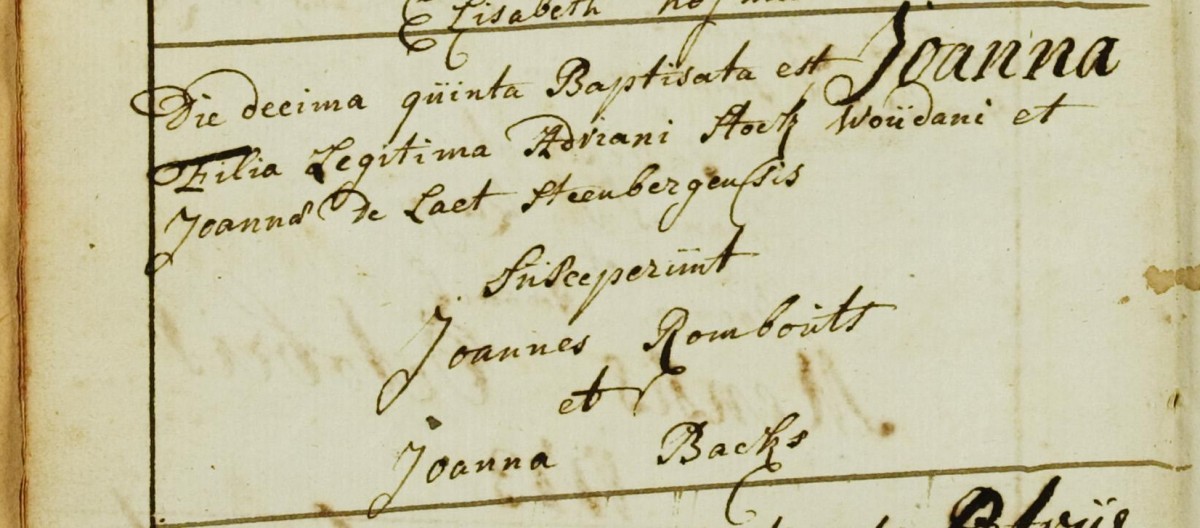 Elisabeth
Die decima quinta Baptisata est Joanna
Filia Legitima Adriani Stock Woudani et
Joannæ de Laet Steenbergensis
Susceperunt
Joannes Rombouts
et
Joanna Backs